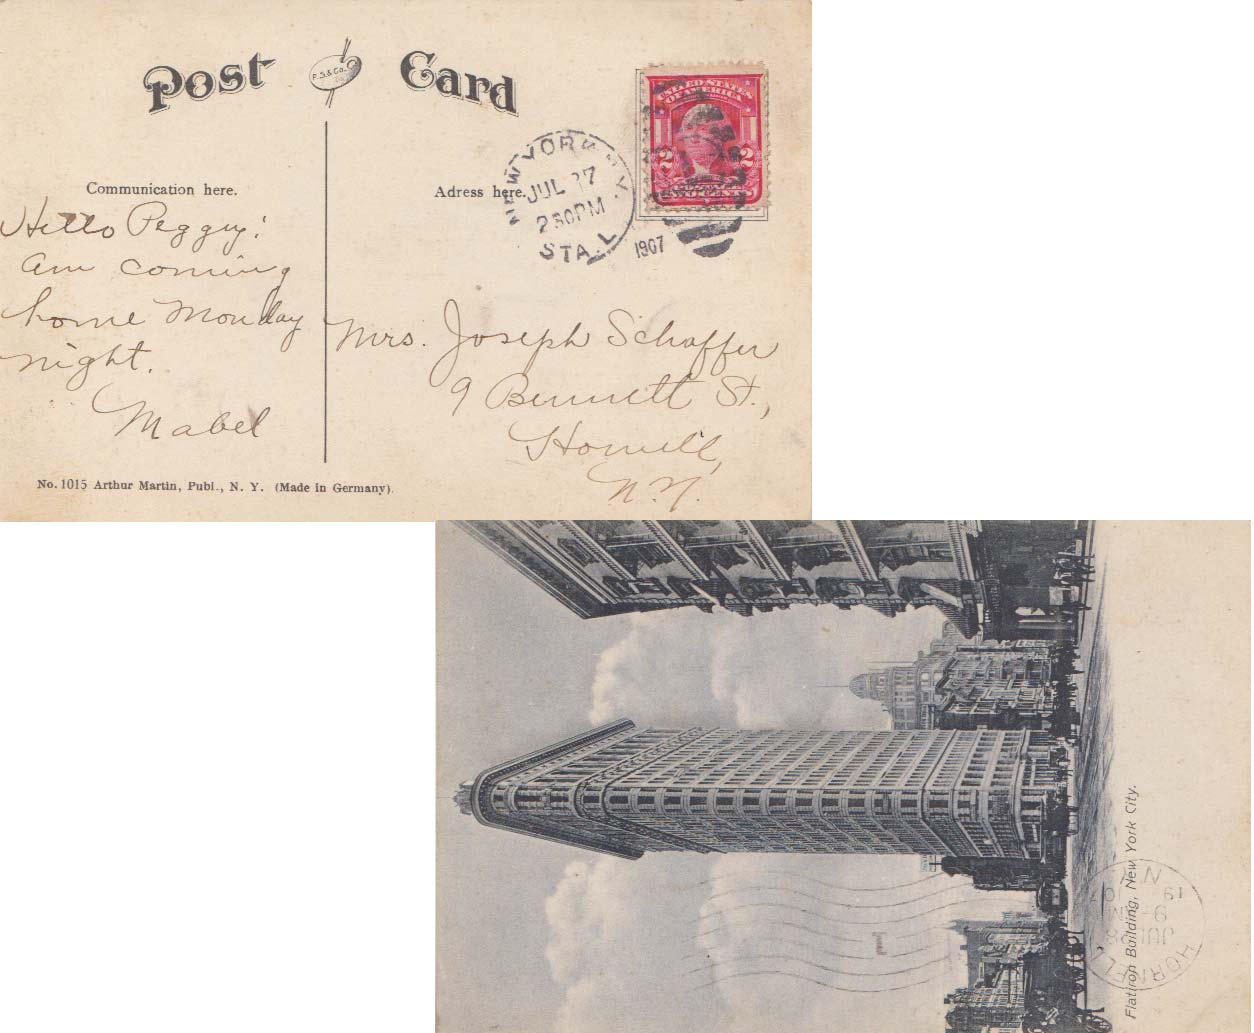 Post Card
P.S.& Co.
UNITED STATES
OF AMERICA
2 2
TWO CENTS
NEW YORK, N.Y.
JUL 27
2 30 PM
STA. L
1907
Communication here.
Adress here.
Hello Peggy!
Am coming
home Monday
night.
Mabel
Mrs. Joseph Schaffer
9 Bennett St.,
Hornell,
N.Y.
No. 1015 Arthur Martin, Publ., N. Y. (Made in Germany).
Flatiron Building, New York City.
HORNELL
JUL 28
9- M
19 07
N.Y.
1